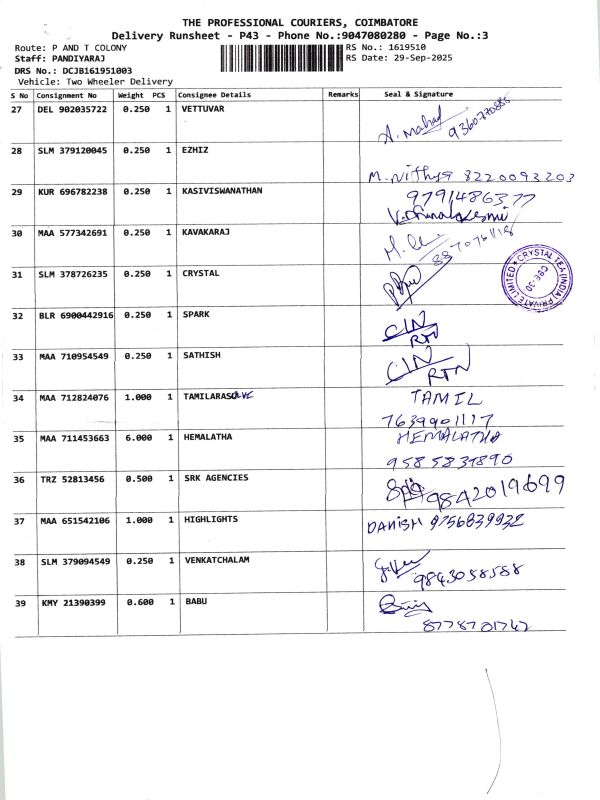 THE PROFESSIONAL COURIERS, COIMBATORE
Delivery Runsheet - P43 - Phone No.:9047080280 - Page No.:3
Route: P AND T COLONY RS No.: 1619510
Staff: PANDIYARAJ RS Date: 29-Sep-2025
DRS No.: DCJB161951003
Vehicle: Two Wheeler Delivery
S No Consignment No Weight PCS Consignee Details Remarks Seal & Signature
27 DEL 902035722 0.250 1 VETTUVAR
A. Mahad
28 SLM 379120045 0.250 1 EZHIZ
M. Nithya 8220093203
29 KUR 696782238 0.250 1 KASIVISWANATHAN 9791486377
30 MAA 577342691 0.250 1 KAVAKARAJ
31 SLM 378726235 0.250 1 CRYSTAL
CRYSTAL TEA (INDIA) PRIVATE LIMITED
CBE-30
32 BLR 6900442916 0.250 1 SPARK CIN
RTN
33 MAA 710954549 0.250 1 SATHISH CIN
RTN
34 MAA 712824076 1.000 1 TAMILARASU TAMIL
7639901117
35 MAA 711453663 6.000 1 HEMALATHA HEMALATHA
9585831890
36 TRZ 52813456 0.500 1 SRK AGENCIES
9842019699
37 MAA 651542106 1.000 1 HIGHLIGHTS DANISH 9756839932
38 SLM 379094549 0.250 1 VENKATCHALAM
9843058588
39 KMY 21390399 0.600 1 BABU
8778701767